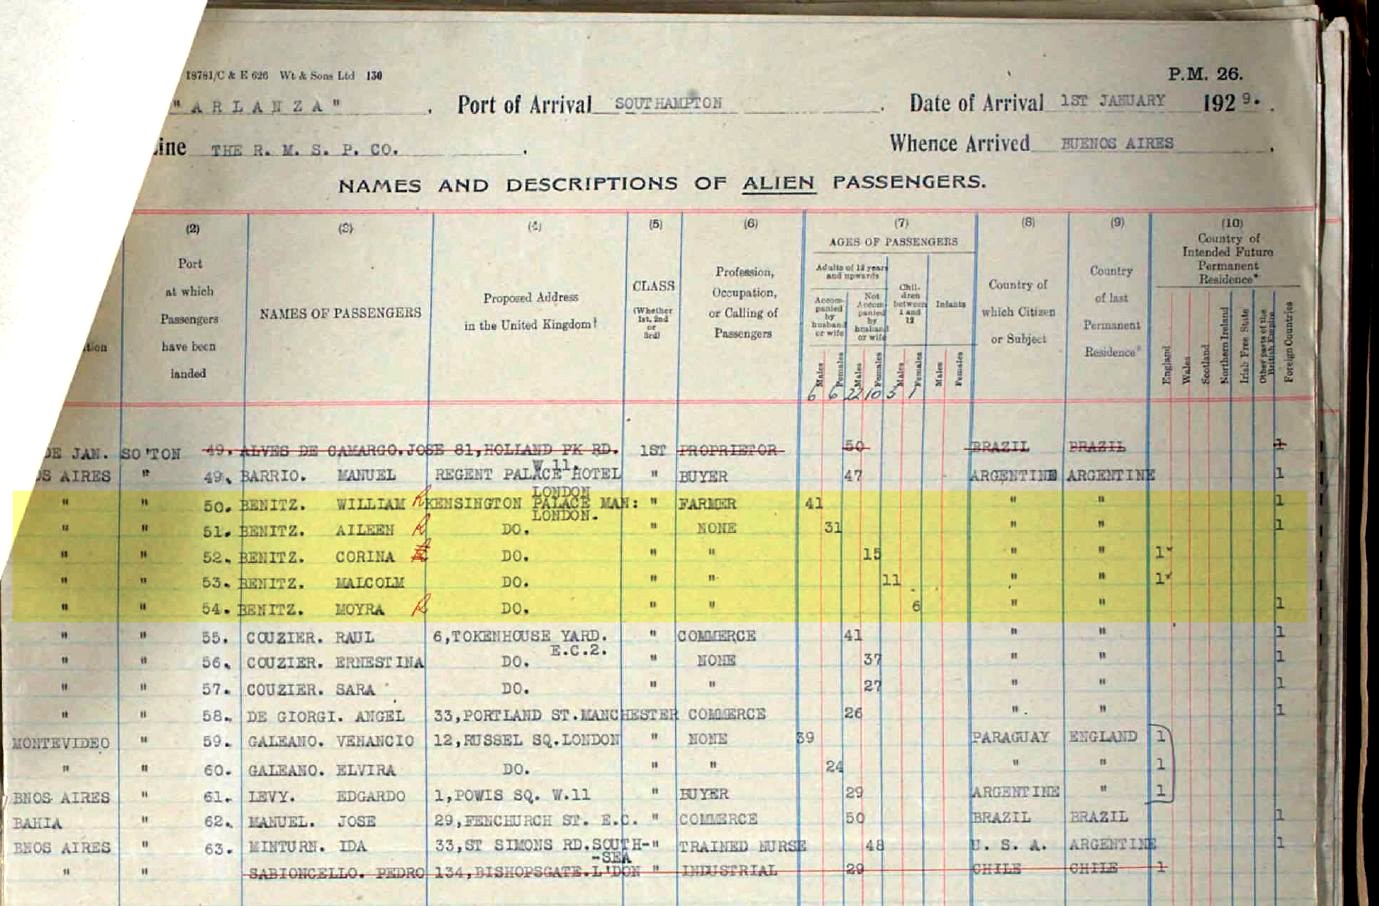 18781/C & E 626 Wt & Sons Ltd 130
P.M. 26.
"ARLANZA" . Port of Arrival SOUTHAMPTON . Date of Arrival 1ST JANUARY 1929. .
ine THE R. M. S. P. CO. . Whence Arrived BUENOS AIRES .
NAMES AND DESCRIPTIONS OF ALIEN PASSENGERS.
(2) (3) (4) (5) (6) (7) (8) (9) (10)
Port
at which
Passengers
have been
landed
NAMES OF PASSENGERS
Proposed Address
in the United Kingdom†
CLASS
(Whether
1st, 2nd
or
3rd)
Profession,
Occupation,
or Calling of
Passengers
AGES OF PASSENGERS
Adults of 12 years
and upwards
Accom-
panied
by
husband
or wife
Not
Accom-
panied
by
husband
or wife
Chil-
dren
between
1 and
12
Infants
Males Females Males Females Males Females Males Females
6 6 22 10 5 1
Country of
which Citizen
or Subject
Country
of last
Permanent
Residence*
Country of
Intended Future
Permanent
Residence*
England Wales Scotland Northern Ireland Irish Free State Other parts of the British Empire Foreign Countries
DE JAN. SO'TON 49. ALVES DE CAMARGO.JOSE 81,HOLLAND PK RD. 1ST PROPRIETOR 50 BRAZIL BRAZIL 1
W 11.
OS AIRES " 49. BARRIO. MANUEL REGENT PALACE HOTEL " BUYER 47 ARGENTINE ARGENTINE 1
LONDON
" " 50. BENITZ. WILLIAM R KENSINGTON PALACE MAN: " FARMER 41 " " 1
LONDON.
" " 51. BENITZ. AILEEN R DO. " NONE 31 " " 1
" " 52. BENITZ. CORINA DO. " " 15 " " 1
" " 53. BENITZ. MALCOLM DO. " " 11 " " 1
" " 54. BENITZ. MOYRA R DO. " " 6 " " 1
" " 55. COUZIER. RAUL 6,TOKENHOUSE YARD. " COMMERCE 41 " " 1
E.C.2.
" " 56. COUZIER. ERNESTINA DO. " NONE 37 " " 1
" " 57. COUZIER. SARA DO. " " 27 " " 1
" " 58. DE GIORGI. ANGEL 33,PORTLAND ST.MANCHESTER COMMERCE 26 " " 1
MONTEVIDEO " 59. GALEANO. VENANCIO 12,RUSSEL SQ.LONDON " NONE 39 PARAGUAY ENGLAND 1
" " 60. GALEANO. ELVIRA DO. " " 24 " " 1
BNOS AIRES " 61. LEVY. EDGARDO 1,POWIS SQ. W.11 " BUYER 29 ARGENTINE " 1
BAHIA " 62. MANUEL. JOSE 29,FENCHURCH ST. E.C. " COMMERCE 50 BRAZIL BRAZIL 1
BNOS AIRES " 63. MINTURN. IDA 33,ST SIMONS RD.SOUTH-" TRAINED NURSE 48 U. S. A. ARGENTINE 1
-SEA
" SABIONCELLO. PEDRO 134,BISHOPSGATE.L'DON " INDUSTRIAL 29 CHILE CHILE 1